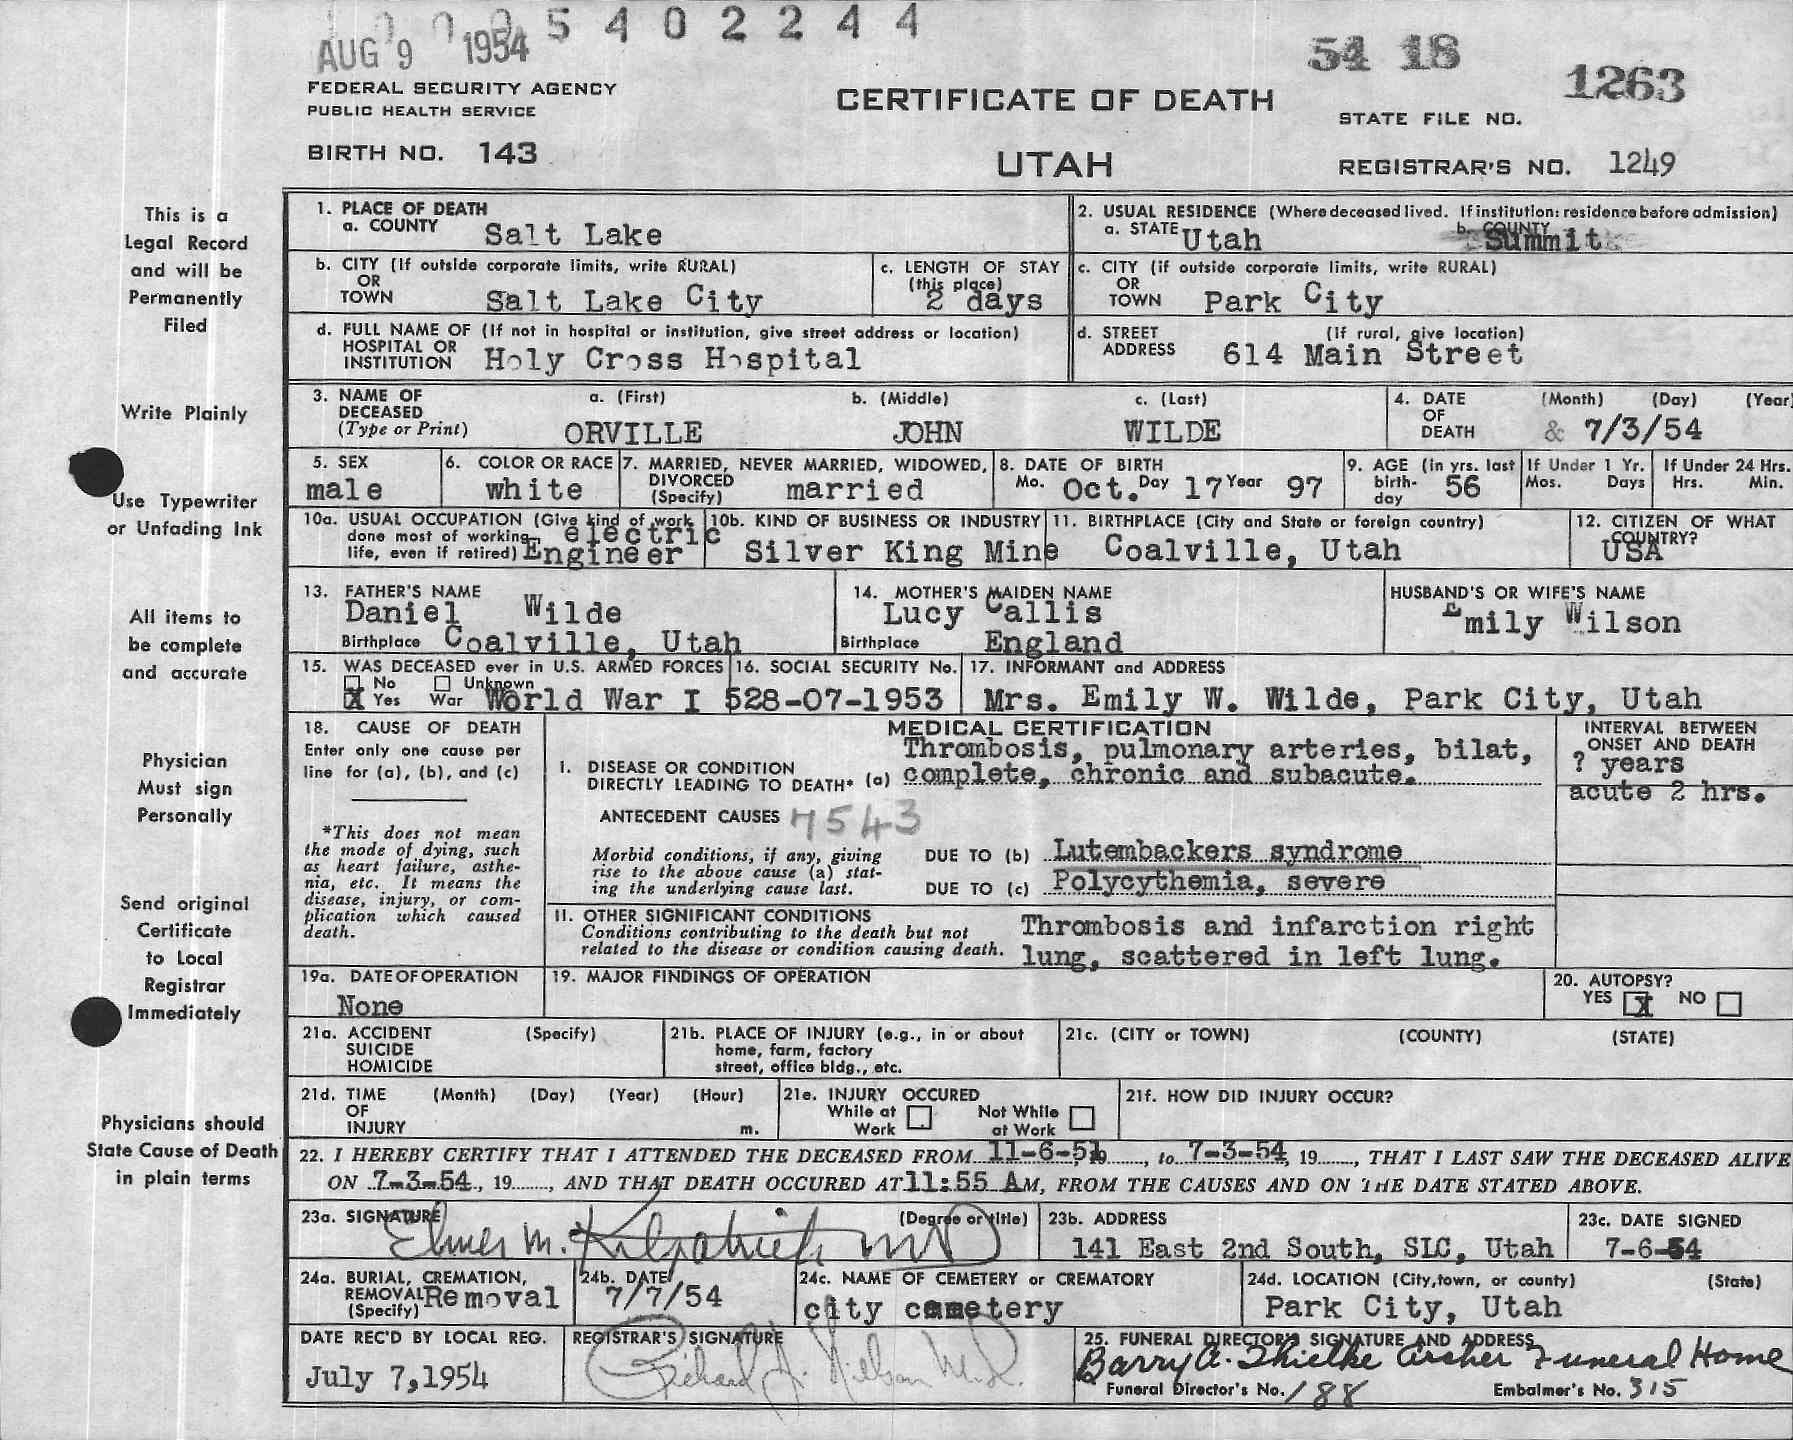 5 4 0 2 2 4 4
AUG 9 1954
54 18
1263
FEDERAL SECURITY AGENCY
PUBLIC HEALTH SERVICE
CERTIFICATE OF DEATH
STATE FILE NO.
BIRTH NO. 143
UTAH
REGISTRAR'S NO. 1249
This is a
Legal Record
and will be
Permanently
Filed
Write Plainly
Use Typewriter
or Unfading Ink
All items to
be complete
and accurate
Physician
Must sign
Personally
Send original
Certificate
to Local
Registrar
Immediately
Physicians should
State Cause of Death
in plain terms
1. PLACE OF DEATH
a. COUNTY Salt Lake
2. USUAL RESIDENCE (Where deceased lived. If institution: residence before admission)
a. STATE Utah b. COUNTY Summit
b. CITY (If outside corporate limits, write RURAL)
OR
TOWN Salt Lake City
c. LENGTH OF STAY
(this place)
2 days
c. CITY (if outside corporate limits, write RURAL)
OR
TOWN Park City
d. FULL NAME OF (If not in hospital or institution, give street address or location)
HOSPITAL OR
INSTITUTION Holy Cross Hospital
d. STREET (If rural, give location)
ADDRESS 614 Main Street
3. NAME OF a. (First) b. (Middle) c. (Last)
DECEASED
(Type or Print) ORVILLE JOHN WILDE
4. DATE (Month) (Day) (Year)
OF
DEATH & 7/3/54
5. SEX
male
6. COLOR OR RACE
white
7. MARRIED, NEVER MARRIED, WIDOWED,
DIVORCED
(Specify) married
8. DATE OF BIRTH
Mo. Oct. Day 17 Year 97
9. AGE (in yrs. last
birth-
day 56
If Under 1 Yr.
Mos. Days
If Under 24 Hrs.
Hrs. Min.
10a. USUAL OCCUPATION (Give kind of work
done most of working electric
life, even if retired) Engineer
10b. KIND OF BUSINESS OR INDUSTRY
Silver King Mine
11. BIRTHPLACE (City and State or foreign country)
Coalville, Utah
12. CITIZEN OF WHAT
COUNTRY?
USA
13. FATHER'S NAME
Daniel Wilde
Birthplace Coalville, Utah
14. MOTHER'S MAIDEN NAME
Lucy Callis
Birthplace England
HUSBAND'S OR WIFE'S NAME
Emily Wilson
15. WAS DECEASED ever in U.S. ARMED FORCES
No Unknown
X Yes War World War I
16. SOCIAL SECURITY No.
528-07-1953
17. INFORMANT and ADDRESS
Mrs. Emily W. Wilde, Park City, Utah
18. CAUSE OF DEATH
Enter only one cause per
line for (a), (b), and (c)
*This does not mean
the mode of dying, such
as heart failure, asthe-
nia, etc. It means the
disease, injury, or com-
plication which caused
death.
MEDICAL CERTIFICATION
Thrombosis, pulmonary arteries, bilat,
I. DISEASE OR CONDITION
DIRECTLY LEADING TO DEATH* (a) complete, chronic and subacute.
INTERVAL BETWEEN
ONSET AND DEATH
? years
acute 2 hrs.
ANTECEDENT CAUSES 7543
Morbid conditions, if any, giving
rise to the above cause (a) stat-
ing the underlying cause last.
DUE TO (b) Lutembackers syndrome
DUE TO (c) Polycythemia, severe
II. OTHER SIGNIFICANT CONDITIONS
Conditions contributing to the death but not
related to the disease or condition causing death.
Thrombosis and infarction right
lung, scattered in left lung.
19a. DATE OF OPERATION
None
19. MAJOR FINDINGS OF OPERATION
20. AUTOPSY?
YES X NO
21a. ACCIDENT (Specify)
SUICIDE
HOMICIDE
21b. PLACE OF INJURY (e.g., in or about
home, farm, factory
street, office bldg., etc.
21c. (CITY or TOWN) (COUNTY) (STATE)
21d. TIME (Month) (Day) (Year) (Hour)
OF
INJURY m.
21e. INJURY OCCURED
While at Work
Not While at Work
21f. HOW DID INJURY OCCUR?
22. I HEREBY CERTIFY THAT I ATTENDED THE DECEASED FROM 11-6-51, 19, to 7-3-54, 19, THAT I LAST SAW THE DECEASED ALIVE
ON 7-3-54, 19, AND THAT DEATH OCCURED AT 11:55 AM, FROM THE CAUSES AND ON THE DATE STATED ABOVE.
23a. SIGNATURE (Degree or title)
Elmer M. Kilpatrick MD
23b. ADDRESS
141 East 2nd South, SLC, Utah
23c. DATE SIGNED
7-6-54
24a. BURIAL, CREMATION,
REMOVAL
(Specify) Removal
24b. DATE
7/7/54
24c. NAME OF CEMETERY or CREMATORY
city cemetery
24d. LOCATION (City, town, or county) (State)
Park City, Utah
DATE REC'D BY LOCAL REG.
July 7, 1954
REGISTRAR'S SIGNATURE
Richard J. Nielson M.D.
25. FUNERAL DIRECTOR'S SIGNATURE AND ADDRESS
Barry A. Thielke Archer Funeral Home
Funeral Director's No. 188 Embalmer's No. 315